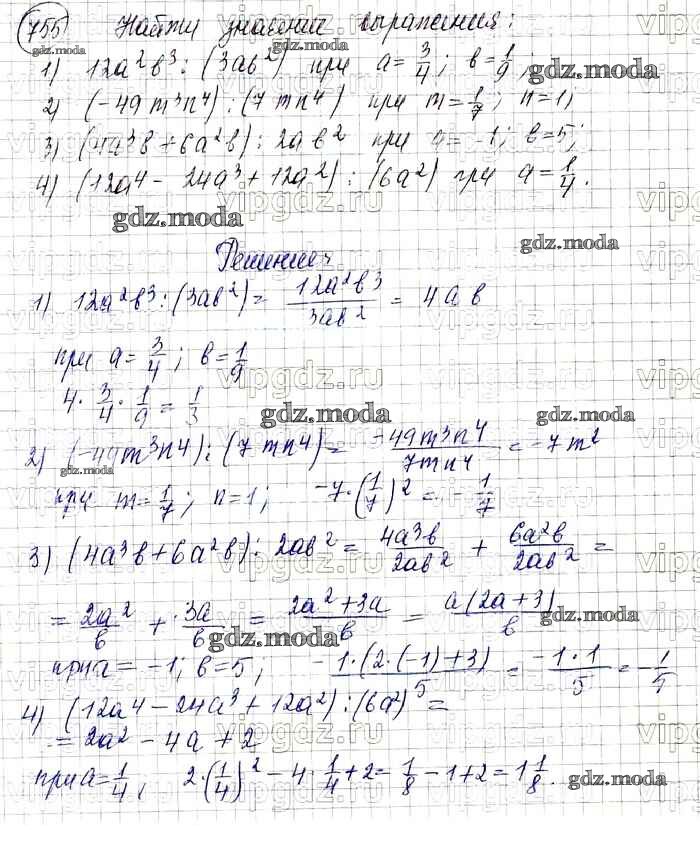 755) Найти значения выражения:
1) 12a²b³ : (3ab²) при a = 3/4; b = 1/9;
2) (-49m³n⁴) : (7mn⁴) при m = 1/7; n = 1;
3) (4a³b + 6a²b) : 2ab² при a = -1; b = 5;
4) (12a⁴ - 24a³ + 12a²) : (6a²) при a = 1/4.
Решение:
1) 12a²b³ : (3ab²) = 12a²b³/3ab² = 4ab
при a = 3/4; b = 1/9
4 · 3/4 · 1/9 = 1/3
2) (-49m³n⁴) : (7mn⁴) = -49m³n⁴/7mn⁴ = -7m²
при m = 1/7; n = 1; -7 · (1/7)² = -1/7
3) (4a³b + 6a²b) : 2ab² = 4a³b/2ab² + 6a²b/2ab² =
= 2a²/b + 3a/b = 2a² + 3a/b = a(2a + 3)/b
при a = -1; b = 5; -1 · (2 · (-1) + 3)/5 = -1 · 1/5 = -1/5
4) (12a⁴ - 24a³ + 12a²) : (6a²) =
= 2a² - 4a + 2
при a = 1/4, 2 · (1/4)² - 4 · 1/4 + 2 = 1/8 - 1 + 2 = 1 1/8.
gdz.moda
vipgdz.ru